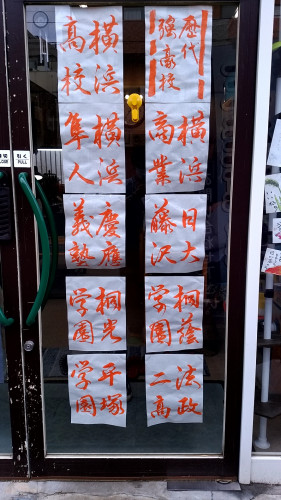 歴代
強豪校
横浜
商業
日大
藤沢
桐蔭
学園
法政
二高
横浜
高校
横浜
隼人
慶應
義塾
桐光
学園
平塚
学園
引く
PULL